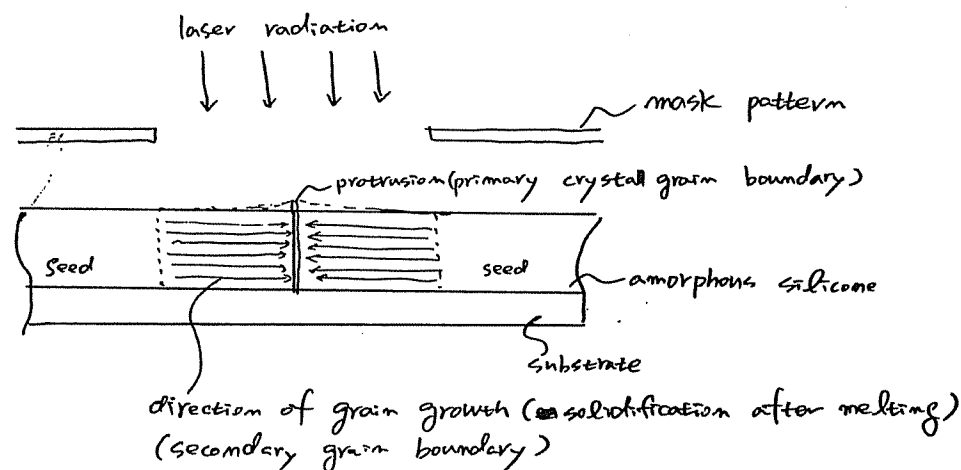 laser radiation
mask pattern
protrusion(primary crystal grain boundary)
seed
seed
amorphous silicone
substrate
direction of grain growth (solidification after melting)
(secondary grain boundary)